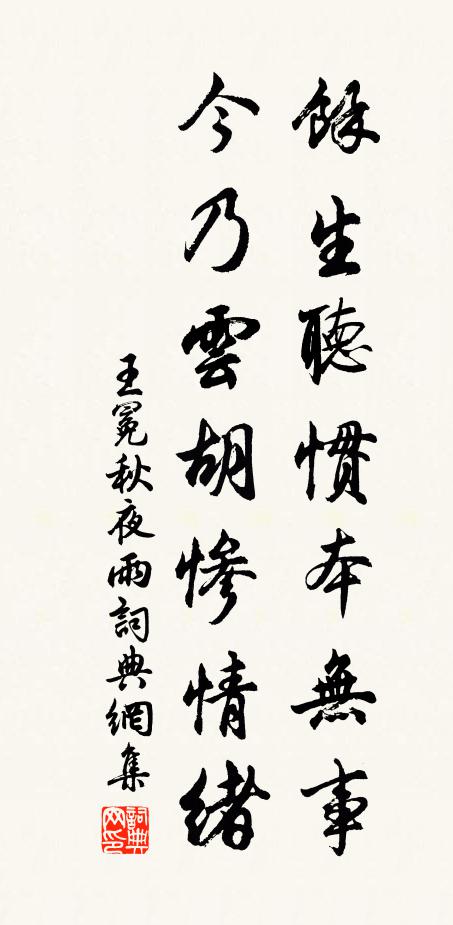 餘生聽慣本無事
今乃雲胡慘情緒
王冕秋夜雨詞典網集
詞典网印